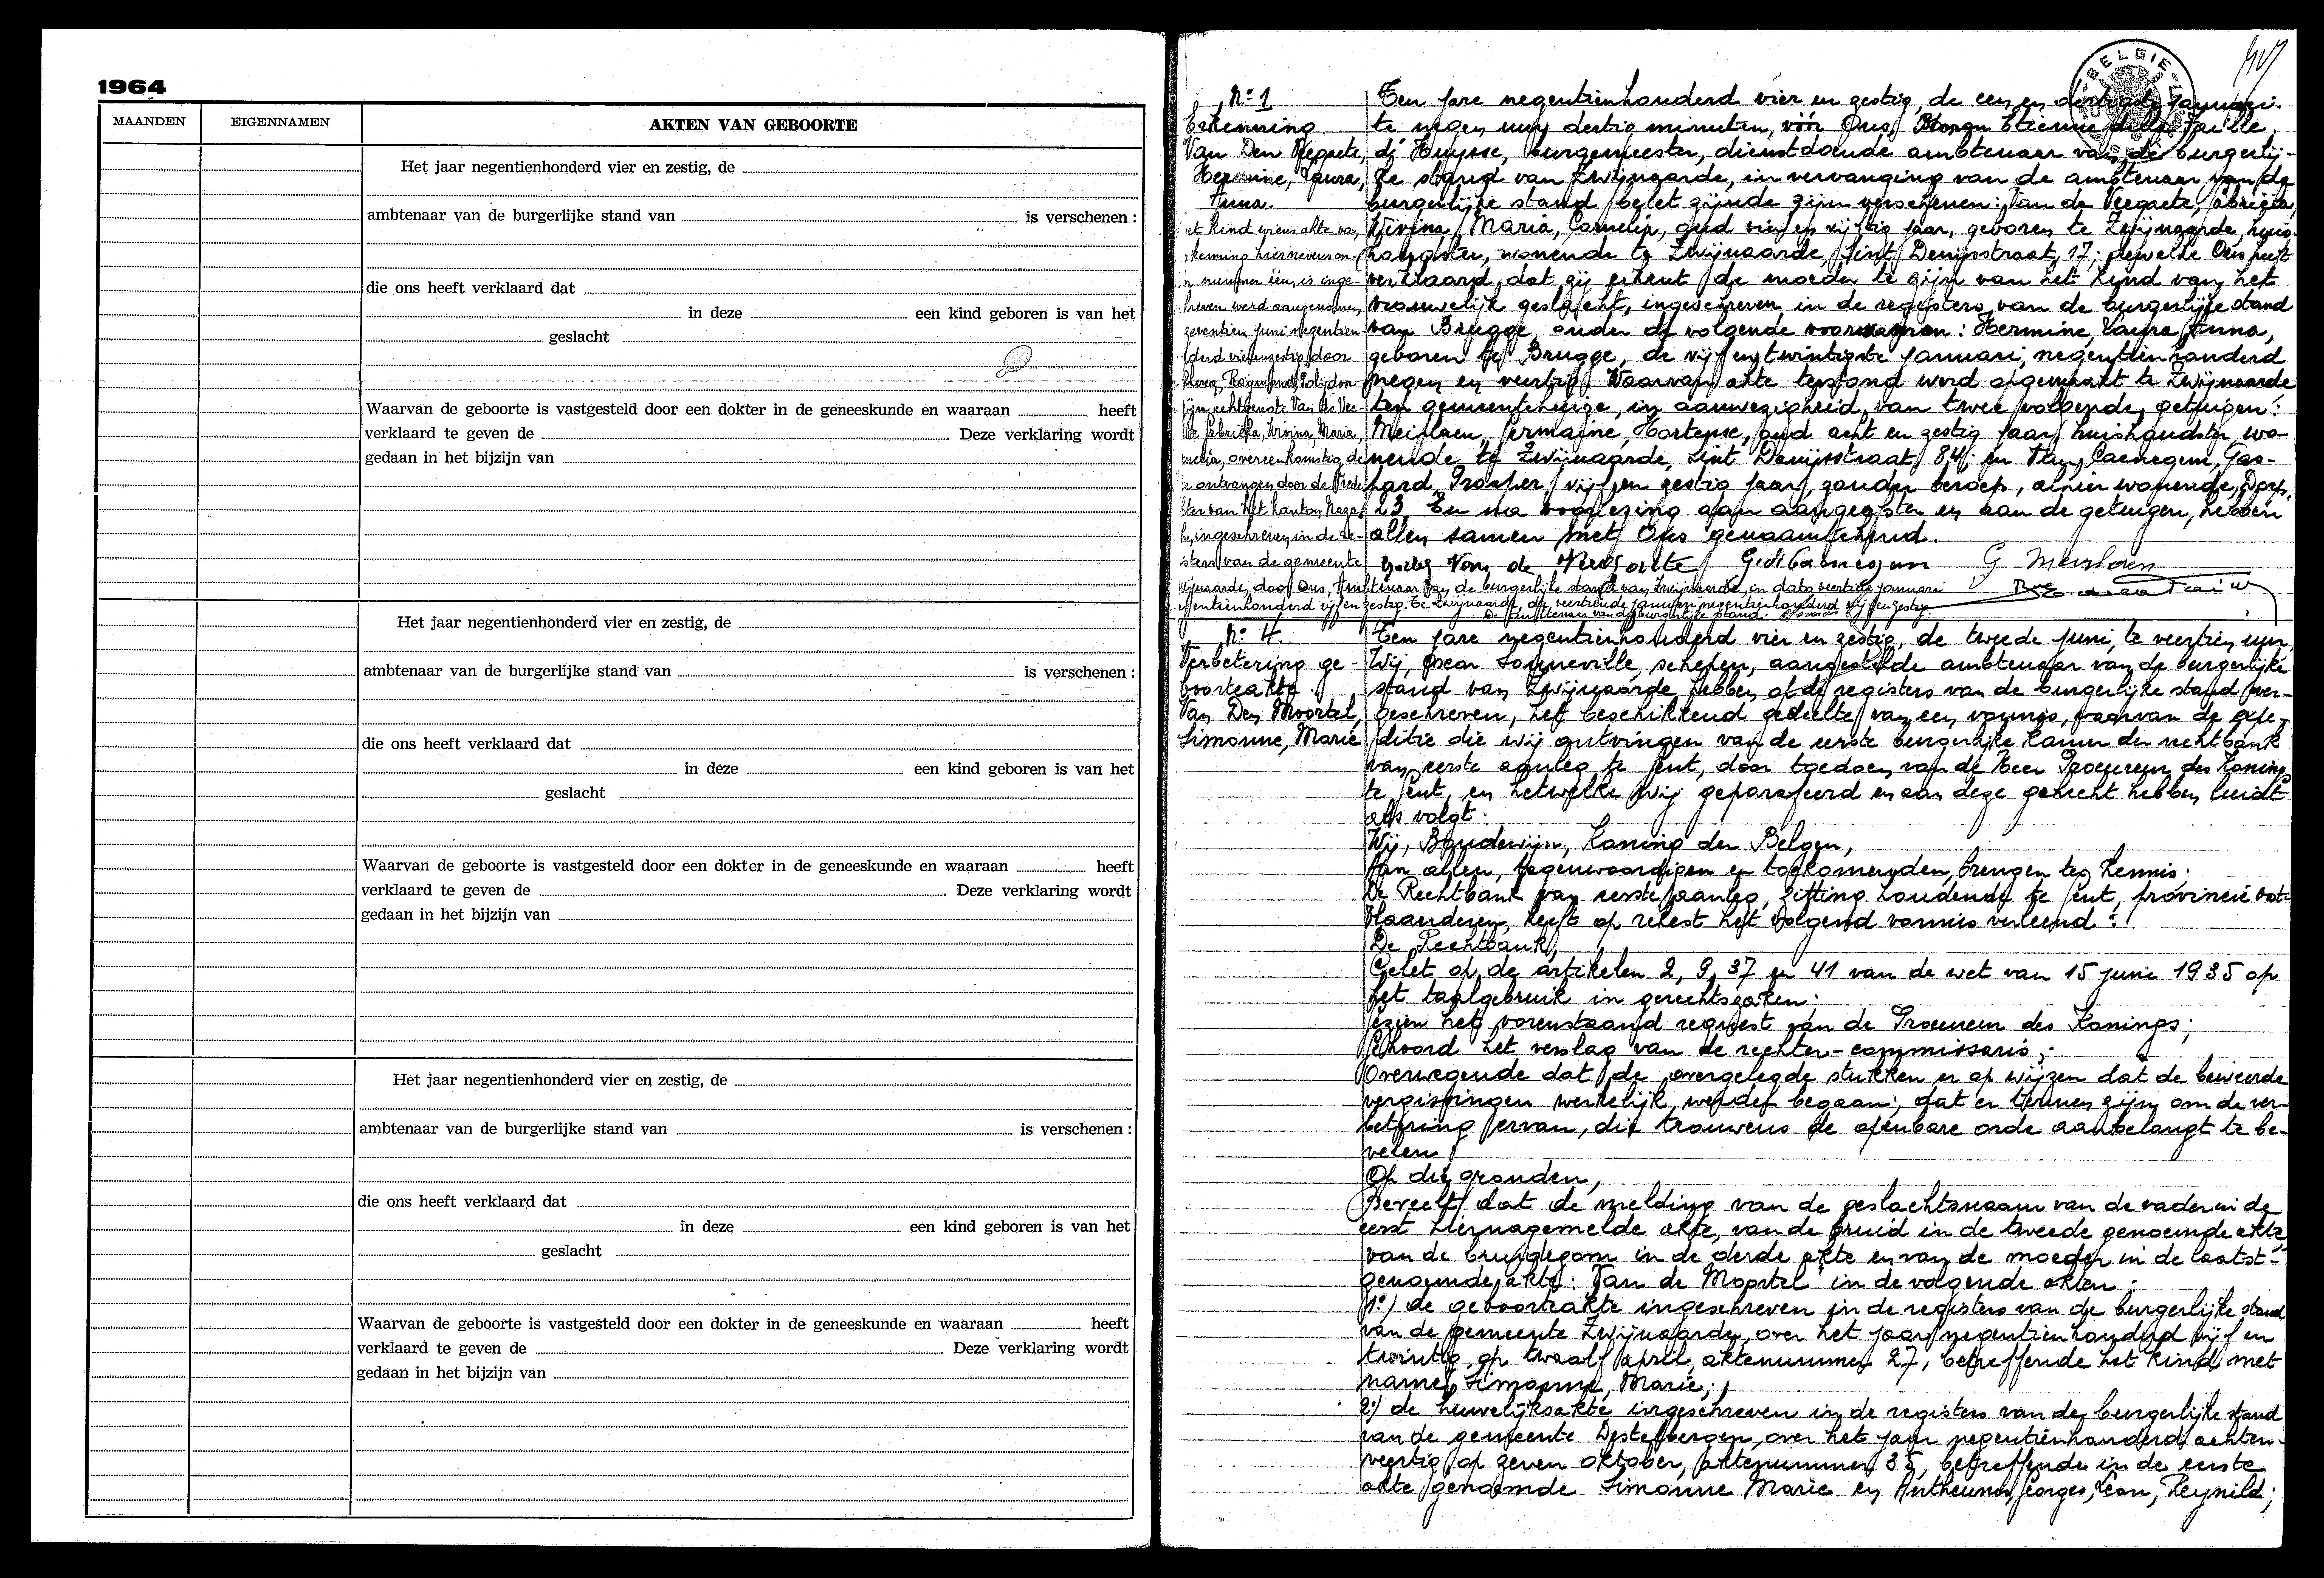 1964
MAANDEN EIGENNAMEN AKTEN VAN GEBOORTE
Het jaar negentienhonderd vier en zestig, de
ambtenaar van de burgerlijke stand van is verschenen :
die ons heeft verklaard dat
in deze een kind geboren is van het
geslacht
Waarvan de geboorte is vastgesteld door een dokter in de geneeskunde en waaraan heeft
verklaard te geven de . Deze verklaring wordt
gedaan in het bijzijn van
Het jaar negentienhonderd vier en zestig, de
ambtenaar van de burgerlijke stand van is verschenen :
die ons heeft verklaard dat
in deze een kind geboren is van het
geslacht
Waarvan de geboorte is vastgesteld door een dokter in de geneeskunde en waaraan heeft
verklaard te geven de . Deze verklaring wordt
gedaan in het bijzijn van
Het jaar negentienhonderd vier en zestig, de
ambtenaar van de burgerlijke stand van is verschenen :
die ons heeft verklaard dat
in deze een kind geboren is van het
geslacht
Waarvan de geboorte is vastgesteld door een dokter in de geneeskunde en waaraan heeft
verklaard te geven de . Deze verklaring wordt
gedaan in het bijzijn van
BELGIE
N° 1
Erkenning
Van Den Veegaete,
Hermine, Laura,
Anna.
et kind wiens akte van
kenning hiernevens on-
r nummer één, is inge-
hreven werd aangenomen
zeventien juni negentien
derd vierenzestig door
Raymond, Polijdoor
zijn echtgenote Van de Vee-
Gabriëlla, Livina, Maria,
overeenkomstig de
ontvangen door de Vrede
ter van het kanton Naza-
h, ingeschreven in de re-
isters van de gemeente
wijnaarde, door Ons, Ambtenaar van de burgerlijke stand van Zwijnaarde, in dato veertien januari
gentienhonderd vijf en zestig. Te Zwijnaarde, de veertiende januari negentienhonderd vijf en zestig.
De Ambtenaar van de burgerlijke stand.
Ten jare negentienhonderd vier en zestig, de een en dertigste januari.
te negen uur dertig minuten, vóór Ons, Etienne della Faille
d' Huysse, burgemeester, dienstdoende ambtenaar van de burgerlij-
ke stand van Zwijnaarde, in vervanging van de ambtenaar van de
burgerlijke stand belet zijnde zijn verschenen: Van de Veegaete, Gabriëla,
Livina, Maria, Cornelia, oud vier en vijftig jaar, geboren te Zwijnaarde, huis-
houdster, wonende te Zwijnaarde Sint Denijsstraat, 17; dewelke Ons heeft
verklaard, dat zij erkent de moeder te zijn van het kind van het
vrouwelijk geslacht, ingeschreven in de registers van de burgerlijke stand
van Brugge onder de volgende voornamen: Hermine, Laura, Anna,
geboren te Brugge, de vijf en twintigste januari, negentienhonderd
negen en veertig. Waarvan akte terstond werd opgemaakt te Zwijnaarde
ten gemeentehuize, in aanwezigheid van twee volgende getuigen:
Meirlaen, Germaine, Hortense, oud acht en zestig jaar, huishoudster, wo-
nende te Zwijnaarde, Sint Denijsstraat, 84, en Van Caenegem, Gas-
hard, Prosper, vijf en zestig jaar, zonder beroep, alhier wonende, Dorp,
23. En na voorlezing aan aangeefster en aan de getuigen, hebben
allen samen met Ons genaamtekend.
Van de Veegaete G. Van Caenegem G Meirlaen
N° 4.
Verbetering ge-
boorteakte
Van Den Moortel,
Simonne, Marie
Ten jare negentienhonderd vier en zestig, de tweede juni, te veertien uur,
Wij, Oscar Sonneville, schepen, aangestelde ambtenaar van de burgerlijke
stand van Zwijnaarde, hebben op de registers van de burgerlijke stand over-
geschreven, het beschikkend gedeelte van een vonnis, waarvan de expe-
ditie die wij ontvingen van de eerste burgerlijke kamer der rechtbank
van eerste aanleg te Gent, door toedoen van de Heer Procureur des Konings
te Gent, en hetwelke wij geparafeerd en aan deze gehecht hebben luidt
als volgt:
Wij, Boudewijn, Koning der Belgen,
Aan allen, tegenwoordigen en toekomenden, brengen ter kennis:
De Rechtbank van eerste aanleg, zitting houdende te Gent, provincie Oost-
Vlaanderen, heeft op rekest het volgend vonnis verleend:
De Rechtbank,
Gelet op de artikelen 2, 9, 37 en 41 van de wet van 15 junie 1935 op
het taalgebruik in gerechtszaken:
Gezien het vorenstaand request van de Procureur des Konings;
Gehoord het verslag van de rechter-commissaris;
Overwegende dat de overgelegde stukken er op wijzen dat de beweerde
vergissingen werkelijk werden begaan; dat er termen zijn om de ver-
betering ervan, die trouwens de openbare orde aanbelangt te be-
velen
Op die gronden,
Beveelt dat de melding van de geslachtsnaam van de vader in de
eerst hiernagemelde akte, van de bruid in de tweede genoemde akte,
van de bruidegom in de derde akte en van de moeder in de laatst-
genoemde akte: Van de Moortel in de volgende akten:
1°) de geboorteakte ingeschreven in de registers van de burgerlijke stand
van de gemeente Zwijnaarde, over het jaar negentienhonderd vijf en
twintig op twaalf april, aktenummer 27, betreffende het kind met
name, Simonne, Marie;
2°) de huwelijksakte ingeschreven in de registers van de burgerlijke stand
van de gemeente Destelbergen, over het jaar negentienhonderd achten-
veertig op zeven oktober, aktenummer 35, betreffende in de eerste
akte genoemde Simonne Marie en Antheunis, Georges, Leon, Reynild;